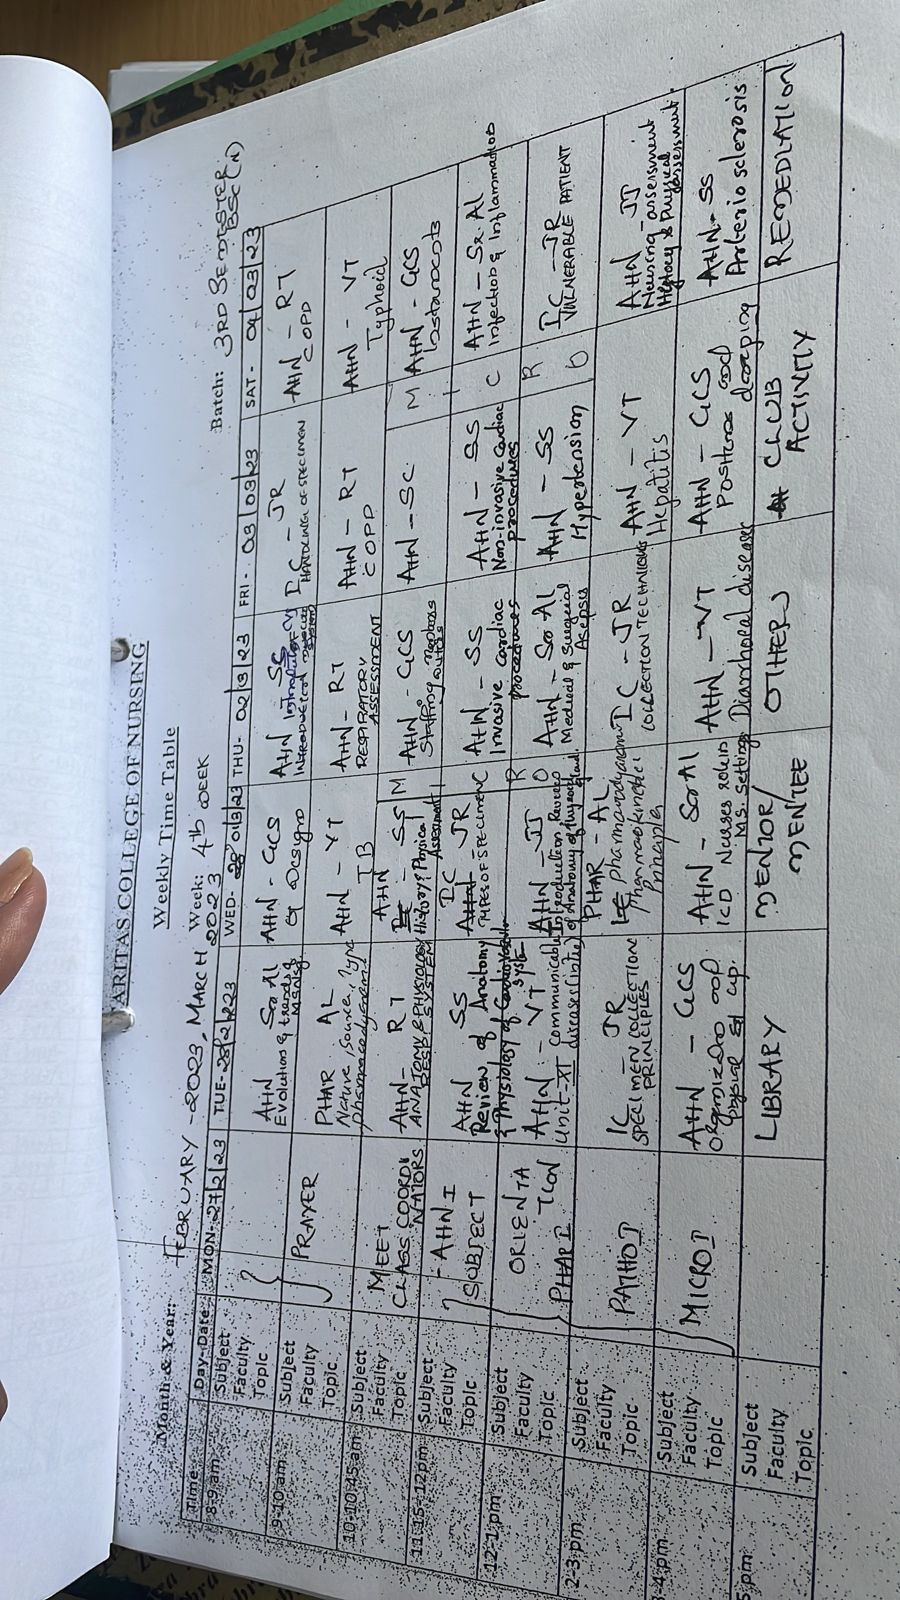 ARITAS COLLEGE OF NURSING
Weekly Time Table
Month & Year: FEBRUARY - 2023, MARCH 2023 Week: 4th WEEK
Batch: 3RD SEMESTER BSC (N)
Time Day-Date MON- 27/2/23 TUE- 28/2/223 WED- 01/3/23 THU- 02/3/23 FRI- 03/03/23 SAT- 04/03/23
8-9am Subject
Faculty
Topic
PRAYER
AHN Sr Al
Evolution & trends of
AHN - GCS
OT Design
AHN SS
INTRODUCTION
IC - JR
HANDLING OF SPECIMEN
AHN - RT
COPD
9-10 am Subject
Faculty
Topic
PHAR AL
Nature, Source, Type
AHN - VT
TB
AHN - RT
RESPIRATORY
ASSESSMENT
AHN - RT
COPD
AHN - VT
Typhoid
10-10:45am Subject
Faculty
Topic
MEET
CLASS COORDI
NATORS
AHN- RT
ANATOMY & PHYSIOLOGY
RESP. SYSTEM
AHN
- SS
History & Physical
Assessment
AHN - GCS
Staffing
AHN - SC
AHN - GCS
11:15-12pm Subject
Faculty
Topic
- AHN I
SUBJECT
AHN SS
Review of Anatomy
& Physiology of Cardiovascular
System
IC
JR
TYPES OF SPECIMEN
AHN - SS
Invasive cardiac
procedures
AHN - SS
Non-invasive cardiac
procedures
AHN - Sr. Al
Infection & Inflammation
12-1 pm Subject
Faculty
Topic
ORIENTA
TION
PHAR I
AHN - VT
Unit-XI communicable
diseases (intro)
AHN - JJ
Introduction, Review
of Anatomy of thyroid
gland.
AHN - Sr Al
Medical & Surgical
Asepsis
AHN - SS
Hypertension
IC - JR
VULNERABLE PATIENT
M
I
C
R
O
M
I
C
R
O
2-3 pm Subject
Faculty
Topic
PATHO I
IC - JR
SPECIMEN COLLECTION
PRINCIPLES
PHAR - AL
pharmacodynamics
Pharmacokinetic
Principles
IC - JR
COLLECTION TECHNIQUES
AHN - VT
Hepatitis
AHN - JJ
Nursing assessment
History & Physical
assessment
3-4 pm Subject
Faculty
Topic
MICRO I
AHN - GCS
Organization and
physical set up.
AHN - Sr Al
ICD Nurses role in
MS. Settings
AHN - VT
Diarrhoeal diseases
AHN - GCS
Positions and
draping
AHN - SS
Arteriosclerosis
5 pm Subject
Faculty
Topic
LIBRARY
MENTOR/
MENTEE
OTHERS
CLUB
ACTIVITY
REMEDIATION